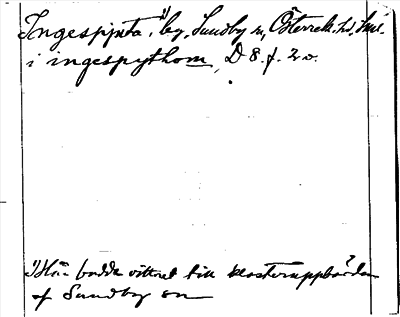 Ingespjuta¹⁾, by, Sundby sn, Österrek. hd, Sml.
i ingespythom, D 8. f. 2 v.
¹⁾ Här bodde vittnet till klosteruppbörden
af Sundby sn